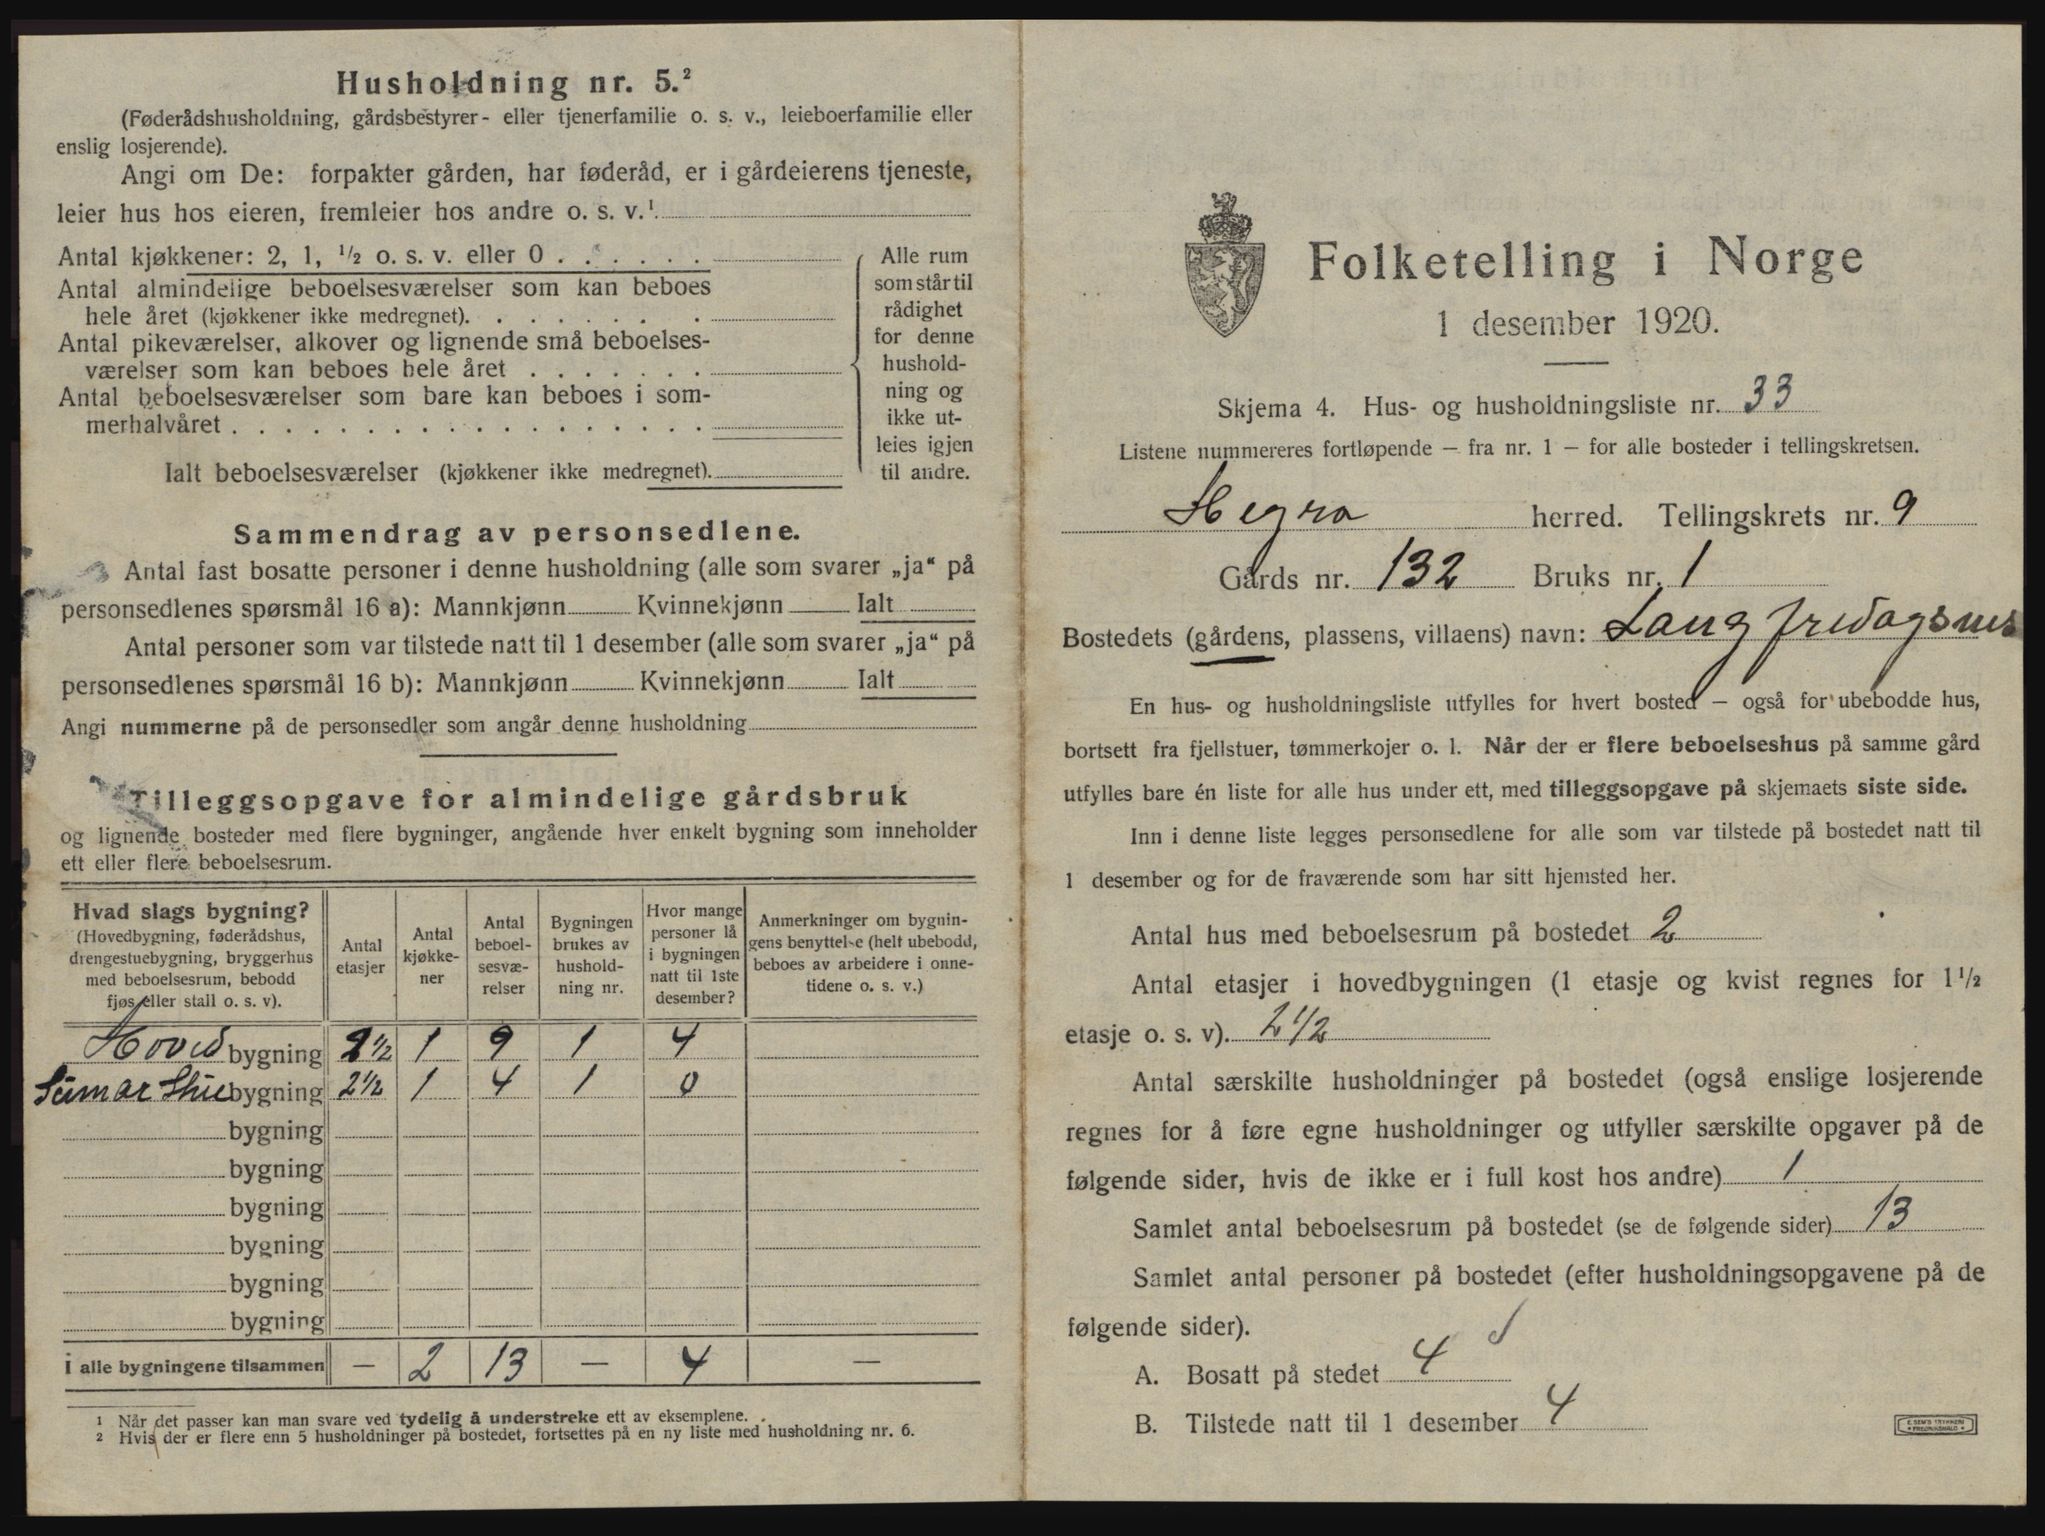 Husholdning nr. 5.²
(Føderådshusholdning, gårdsbestyrer- eller tjenerfamilie o. s. v., leieboerfamilie eller
enslig losjerende).
Angi om De: forpakter gården, har føderåd, er i gårdeierens tjeneste,
leier hus hos eieren, fremleier hos andre o. s. v.¹
Antal kjøkkener: 2, 1, ½ o. s. v. eller 0 . . . . . .
Antal almindelige beboelsesværelser som kan beboes
hele året (kjøkkener ikke medregnet). . . . . . . .
Antal pikeværelser, alkover og lignende små beboelses-
værelser som kan beboes hele året . . . . . . .
Antal beboelsesværelser som bare kan beboes i som-
merhalvåret . . . . . . . . . . . . . . . . . .
Ialt beboelsesværelser (kjøkkener ikke medregnet).
Alle rum
som står til
rådighet
for denne
hushold-
ning og
ikke ut-
leies igjen
til andre.
Sammendrag av personsedlene.
Antal fast bosatte personer i denne husholdning (alle som svarer „ja“ på
personsedlenes spørsmål 16 a): Mannkjønn Kvinnekjønn Ialt
Antal personer som var tilstede natt til 1 desember (alle som svarer „ja“ på
personsedlenes spørsmål 16 b): Mannkjønn Kvinnekjønn Ialt
Angi nummerne på de personsedler som angår denne husholdning
Tilleggsopgave for almindelige gårdsbruk
og lignende bosteder med flere bygninger, angående hver enkelt bygning som inneholder
ett eller flere beboelsesrum.
Hvad slags bygning?
(Hovedbygning, føderådshus,
drengestuebygning, bryggerhus
med beboelsesrum, bebodd
fjøs eller stall o. s. v).
Antal
etasjer
Antal
kjøkke-
ner
Antal
beboel-
sesvæ-
relser
Bygningen
brukes av
hushold-
ning nr.
Hvor mange
personer lå
i bygningen
natt til 1ste
desember?
Anmerkninger om bygnin-
gens benyttelse (helt ubebodd,
beboes av arbeidere i onne-
tidene o. s. v.)
Hovedbygning 2½ 1 9 1 4
Sumar Stuebygning 2½ 1 4 1 0
bygning
bygning
bygning
bygning
bygning
bygning
I alle bygningene tilsammen — 2 13 — 4 —
1 Når det passer kan man svare ved tydelig å understreke ett av eksemplene.
2 Hvis der er flere enn 5 husholdninger på bostedet, fortsettes på en ny liste med husholdning nr. 6.
Folketelling i Norge
1 desember 1920.
Skjema 4. Hus- og husholdningsliste nr. 33
Listene nummereres fortløpende — fra nr. 1 — for alle bosteder i tellingskretsen.
Hegra herred. Tellingskrets nr. 9
Gårds nr. 132 Bruks nr. 1
Bostedets (gårdens, plassens, villaens) navn: Langfredagsnes
En hus- og husholdningsliste utfylles for hvert bosted — også for ubebodde hus,
bortsett fra fjellstuer, tømmerkojer o. l. Når der er flere beboelseshus på samme gård
utfylles bare én liste for alle hus under ett, med tilleggsopgave på skjemaets siste side.
Inn i denne liste legges personsedlene for alle som var tilstede på bostedet natt til
1 desember og for de fraværende som har sitt hjemsted her.
Antal hus med beboelsesrum på bostedet 2
Antal etasjer i hovedbygningen (1 etasje og kvist regnes for 1½
etasje o. s. v). 2½
Antal særskilte husholdninger på bostedet (også enslige losjerende
regnes for å føre egne husholdninger og utfyller særskilte opgaver på de
følgende sider, hvis de ikke er i full kost hos andre) 1
Samlet antal beboelsesrum på bostedet (se de følgende sider) 13
Samlet antal personer på bostedet (efter husholdningsopgavene på de
følgende sider).
A. Bosatt på stedet 4
B. Tilstede natt til 1 desember 4